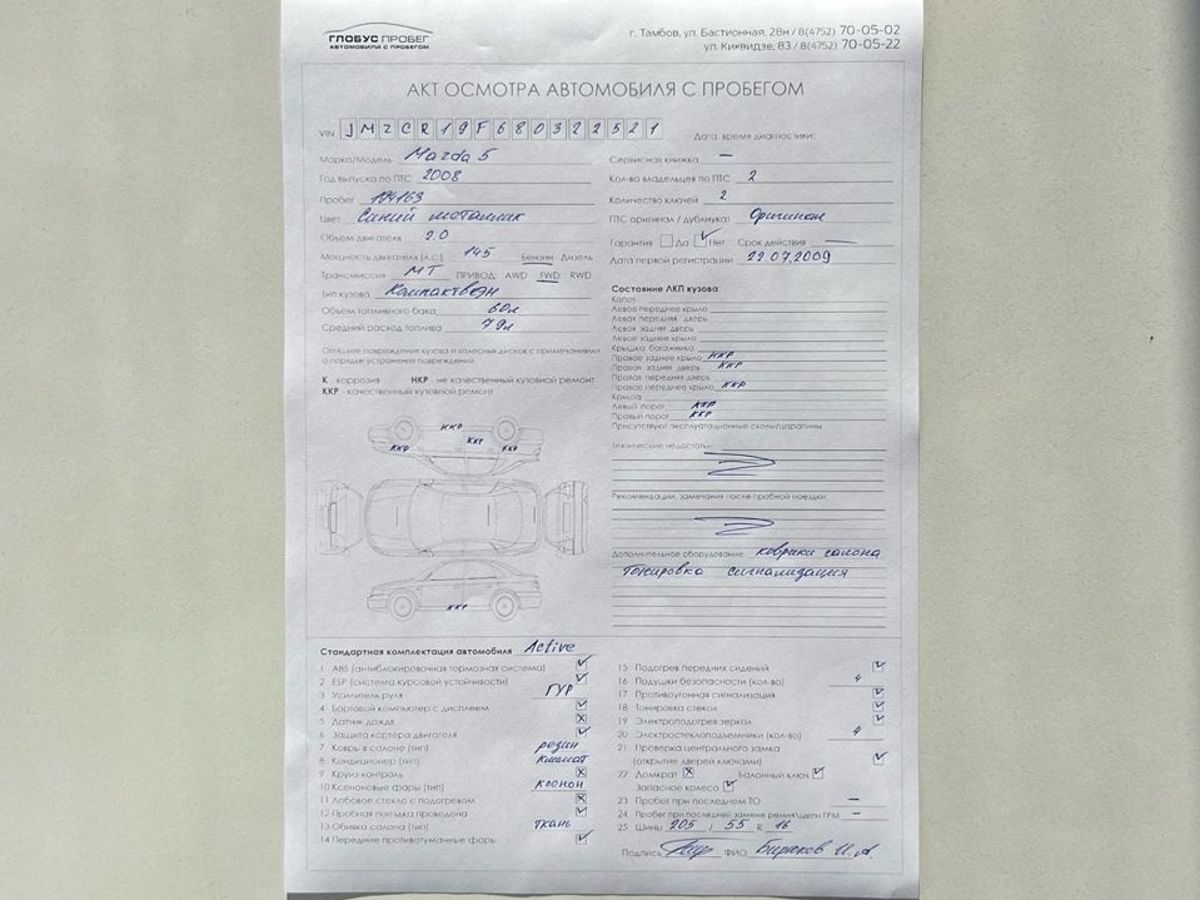 ГЛОБУС ПРОБЕГ
АВТОМОБИЛИ С ПРОБЕГОМ
г. Тамбов, ул. Бастионная, 28н / 8(4752) 70-05-02
ул. Киквидзе, 83 / 8(4752) 70-05-22
АКТ ОСМОТРА АВТОМОБИЛЯ С ПРОБЕГОМ
VIN JMZCR19F680322521
Дата, время диагностики:
Марка/Модель Mazda 5
Год выпуска по ПТС 2008
Пробег 194163
Цвет Синий металлик
Объем двигателя 2.0
Мощность двигателя (л.с.) 145 Бензин Дизель
Трансмиссия МТ ПРИВОД: AWD FWD RWD
Тип кузова Компактвэн
Объем топливного бака 60л
Средний расход топлива 7.9л
Опишите повреждения кузова и колесных дисков с примечаниями
о порядке устранения повреждений.
К коррозия НКР не качественный кузовной ремонт
ККР - качественный кузовной ремонт
Сервисная книжка —
Кол-во владельцев по ПТС 2
Количество ключей 2
ПТС оригинал / дубликат Оригинал
Гарантия Да Нет Срок действия —
Дата первой регистрации 22.07.2009
Состояние ЛКП кузова
Капот
Левое переднее крыло
Левая передняя дверь
Левая задняя дверь
Левое заднее крыло
Крышка багажника
Правое заднее крыло ККР
Правая задняя дверь ККР
Правая передняя дверь
Правое переднее крыло ККР
Крыша
Левый порог ККР
Правый порог ККР
Присутствуют эксплуатационные сколы/царапины
Технические недостатки:
Рекомендации, замечания после пробной поездки:
Дополнительное оборудование коврики салона
Тонировка сигнализация
ККР
ККР
ККР
ККР
ККР
Стандартная комплектация автомобиля Active
1 ABS (антиблокировочная тормозная система)
2 ESP (система курсовой устойчивости)
3 Усилитель руля ГУР
4 Бортовой компьютер с дисплеем
5 Датчик дождя
6 Защита картера двигателя
7 Ковры в салоне (тип) резин
8 Кондиционер (тип) климат
9 Круиз-контроль
10 Ксеноновые фары (тип) ксенон
11 Лобовое стекло с подогревом
12 Пробная поездка проведена
13 Обивка салона (тип) ткань
14 Передние противотуманные фары
15 Подогрев передних сидений
16 Подушки безопасности (кол-во) 4
17 Противоугонная сигнализация
18 Тонировка стекол
19 Электроподогрев зеркал
20 Электростеклоподъемники (кол-во) 4
21 Проверка центрального замка
(открытие дверей ключами)
22 Домкрат Балонный ключ
Запасное колесо
23 Пробег при последнем ТО —
24 Пробег при последней замене ремня/цепи ГРМ —
25 Шины 205 / 55 R 16
Подпись ФИО Бирюков И.А.